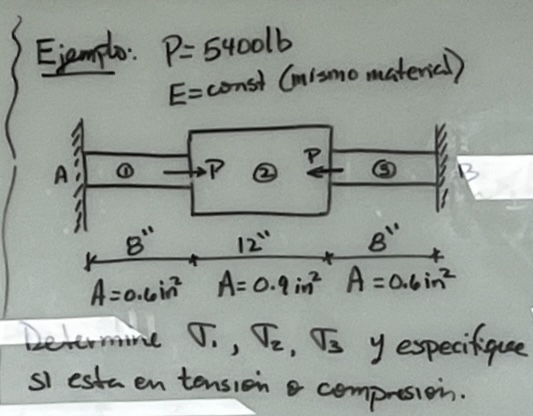 Ejemplo: P=5400lb
E=const (mismo material)
A ① →P ② P← ③ B
8" 12" 8"
A=0.6in² A=0.9in² A=0.6in²
Determine σ₁, σ₂, σ₃ y especifique
si esta en tensión o compresión.